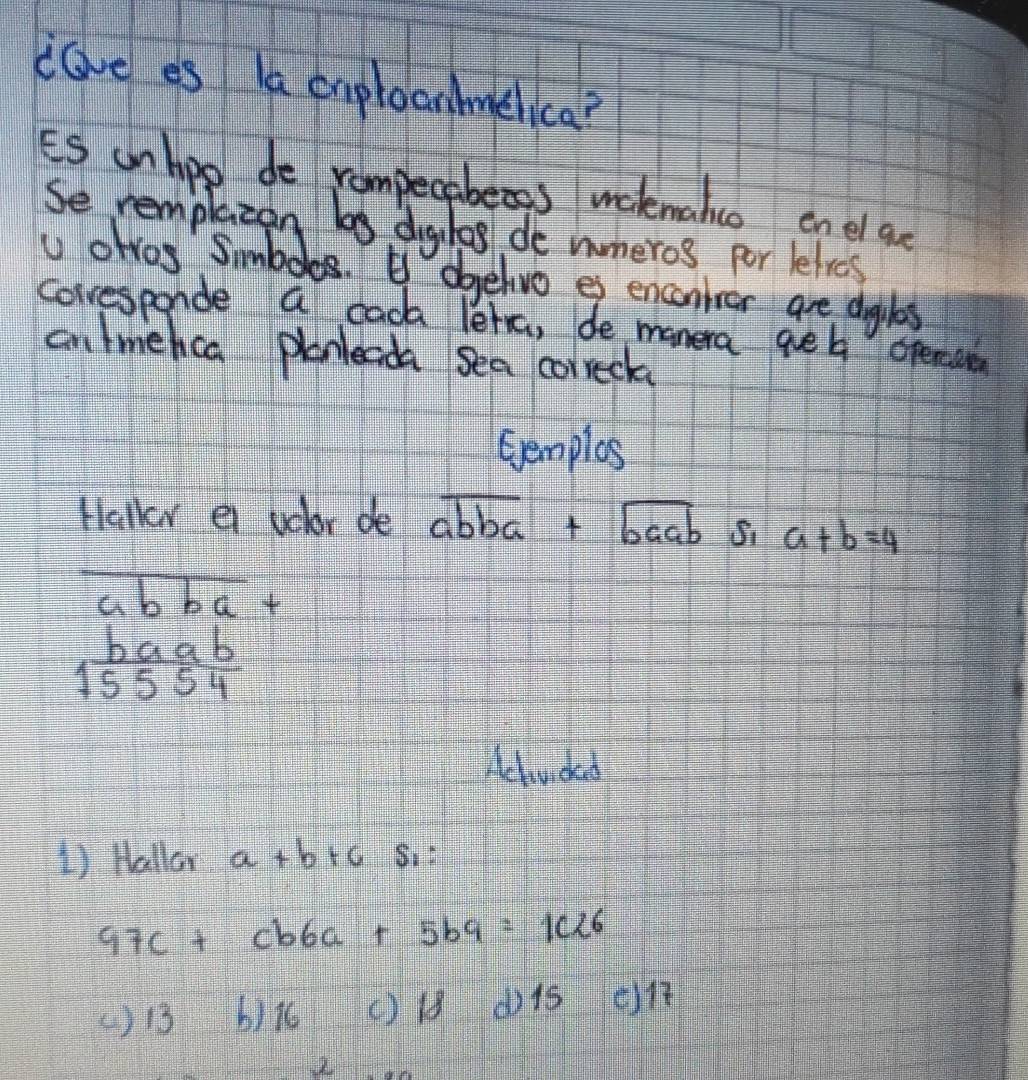 ¿Que es la criptoaritmética?
Es un tipo de rompecabezas matematico en el que
Se remplazan los digitos de numeros por letras
u otros Simbolos. El objetivo es encontrar que digitos
corresponde a cada letra, de manera que la operación
aritmetica planteada sea correcta
Ejemplos
Hallar el valor de abba + baab Si a+b=4
abba +
baab
15554
Actividad
1) Hallar a+b+c si:
97c + cb6a + 5b9 = 1c26
a) 13 b) 16 c) d) 15 e) 17